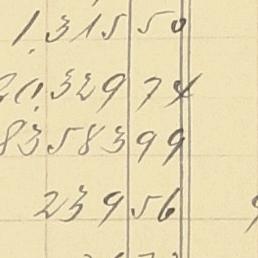 1,315 50
20,329 74
83583 99
239 56